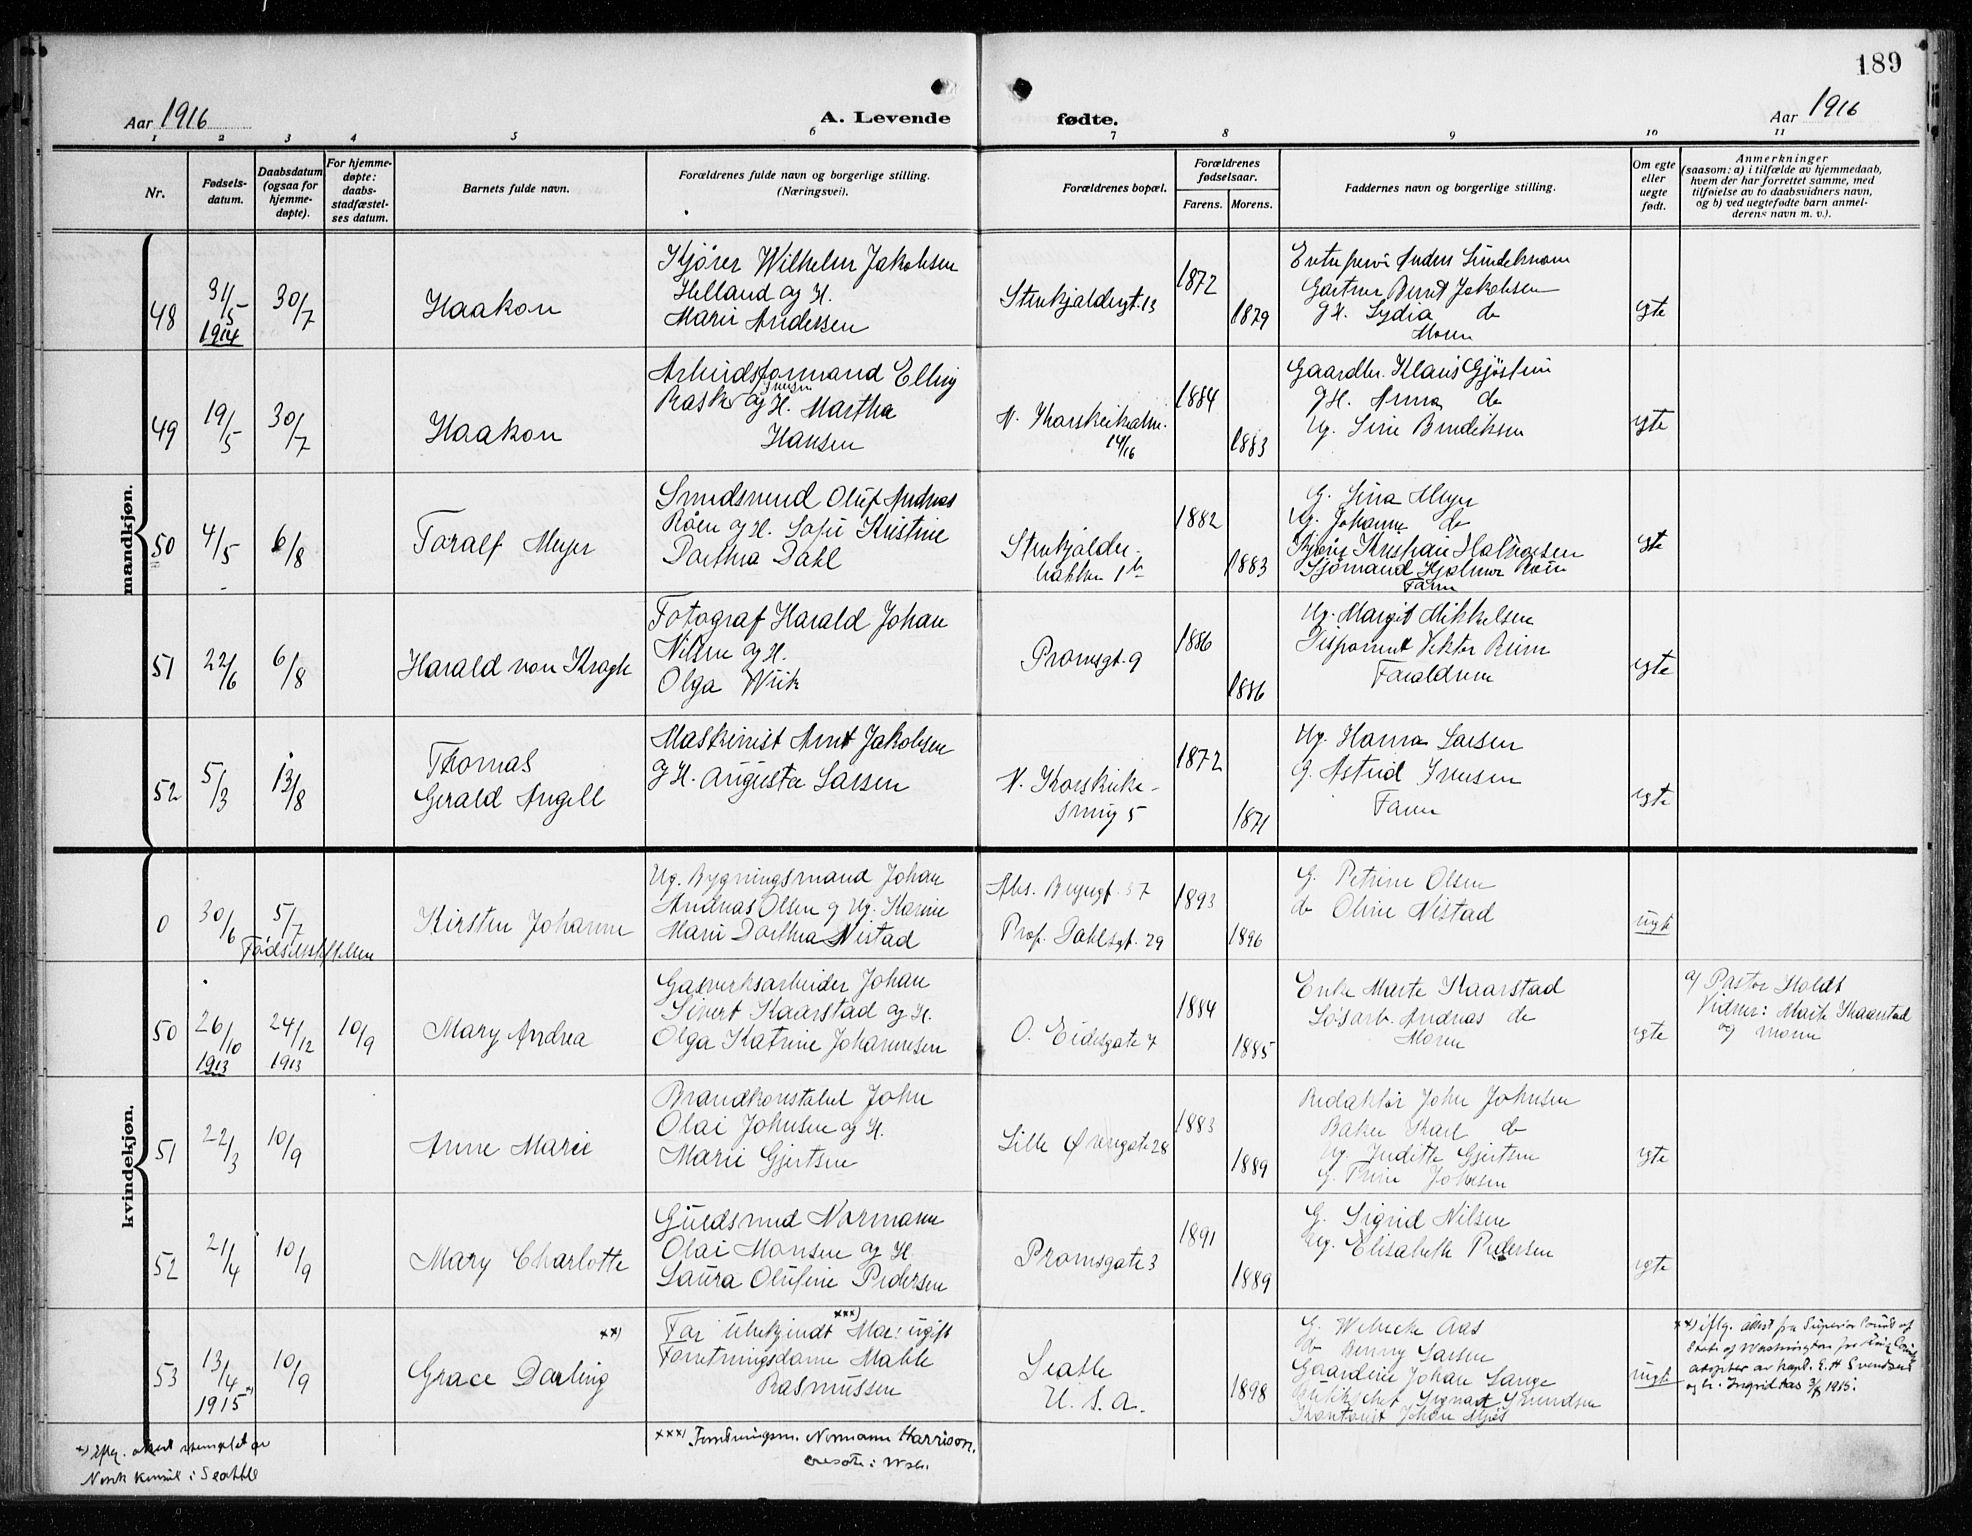 189
Aar 1916
A. Levende
fødte.
Aar 1916
1 2 3 4 5 6 7 8 9 10 11
Nr.
Fødsels-
datum.
Daabsdatum
(ogsaa for
hjemme-
døpte).
For hjemme-
døpte:
daabs-
stadfæstel-
ses datum.
Barnets fulde navn.
Forældrenes fulde navn og borgerlige stilling.
(Næringsvei).
Forældrenes bopæl.
Forældrenes
fødselsaar.
Farens. Morens.
Faddernes navn og borgerlige stilling.
Om egte
eller
uegte
født.
Anmerkninger
(saasom: a) i tilfælde av hjemmedaab,
hvem der har forrettet samme, med
tilføielse av to daabsvidners navn,
og b) ved uegtefødte barn anmel-
derens navn m. v.).
mandkjøn.
48
31/5
1914
30/7
Haakon
Kjører Wilhelm Jakobsen
Helland og H.
Marie Andersen
Strukjaldergt. 13
1872
1879
Gartner Bernt Jakobsen
Lydia do
Moren
egte
49
19/5
30/7
Haakon
Arbeidsformand Elling
og H. Martha
Hansen
N. Korskirkealm.
14/16
1884
1883
Gaardbr. Klaus Gjøstein
G.H. Anna do
Ug. Sine Bendiksen
egte
50
4/5
6/8
Toralf Meyer
Smedsvend Oluf Andreas
Røen og H. Sofie Kristine
Dorthea Dahl
bakken 1b
1882
1883
G. Sina Meyer
Ug. Johanne do
Kjører Kristian Halvorsen
Sjømand Hjalmar Røen
Faren
egte
51
22/6
6/8
Harald von Kragh
Fotograf Harald Johan
Nilsen og H.
Olga Wiik
Promsgt. 9
1886
1886
Ug. Margit Mikkelsen
Disponent Viktor Reim
Forældrene
egte
52
5/3
13/8
Thomas
Gerald Angell
Maskinist Arnt Jakobsen
G H. Augusta Larsen
N. Korskirke-
smug 5
1872
1871
Ug. Hanna Larsen
G. Astrid Iversen
Faren
egte
kvindekjøn.
0
30/6
5/7
Fødselsstiftelsen
Kirsten Johanne
Ug. Bygningsmand Johan
Andreas Olsen og Ug. Karine
Marie Dorthea Nistad
Abs. Beyergt. 57
Prof. Dahlsgt. 29
1893
1896
G. Petrine Olsen
do Oline Nistad
uegte
50
26/10
1913
24/12
1913
10/9
Mary Andrea
Gasverksarbeider Johan
Sivert Kaarstad og H.
Olga Katrine Johannesen
O. Eidesgate 7
1884
1885
Enke Marte Kaarstad
Løsarb. Andreas do
Moren
egte
a) Pastor Holdt
Vidner: Marte Kaarstad
og moren
51
22/3
10/9
Anne Marie
Brandkonstabel John
Olai Johnsen og H.
Marie Gjertsen
Lille Øvregate 28
1883
1889
Redaktør John Johnsen
Baker Karl do
Ug. Judithe Gjertsen
egte
52
21/4
10/9
Mary Charlotte
Guldsmed Normann
Olai Monsen og H.
Laura Olufine Pedersen
Promsgate 3
1891
1889
G. Sigrid Nilsen
Ug. Elisabeth Pedersen
egte
53
13/4
1915 x)
10/9
xx)
Grace Darling
xxx)
Far: Ubekjendt Mor: ugift
Forretningsdame Mable
Rasmussen
Seatle
U. S. A.
1898
G. Wibecke Aas
do Benny Larsen
Gaardeier Johan Lange
Kontorist Johan
uegte
xx) iflg. attest fra Superior Court of
State of Washington for King County
adopter av kapt. E. H. Svendsen
og h. Ingrid Aas 3/8 1915.
x) Iflg. attest stemplet av
Norsk Konsul i Seattle
xxx) Forretningsm. Normann Harrison,
i Wsh.